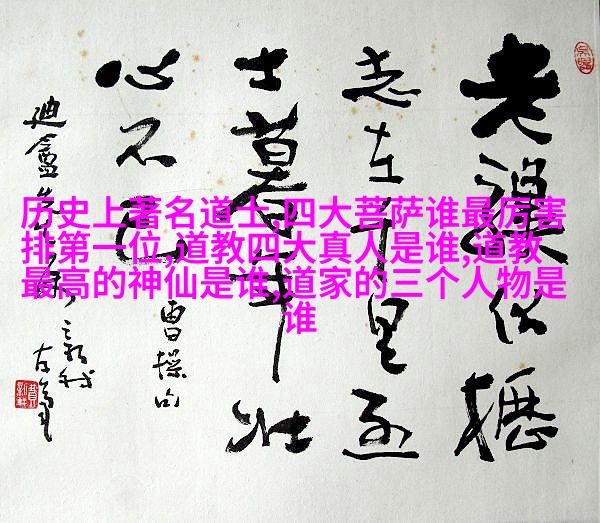 历史上著名道士,四大菩萨谁最厉害
排第一位,道教四大真人是谁,道教
最高的神仙是谁,道家的三个人物是
谁
老驥伏櫪
志在千里烈
士暮年壮
心不已
曹操句